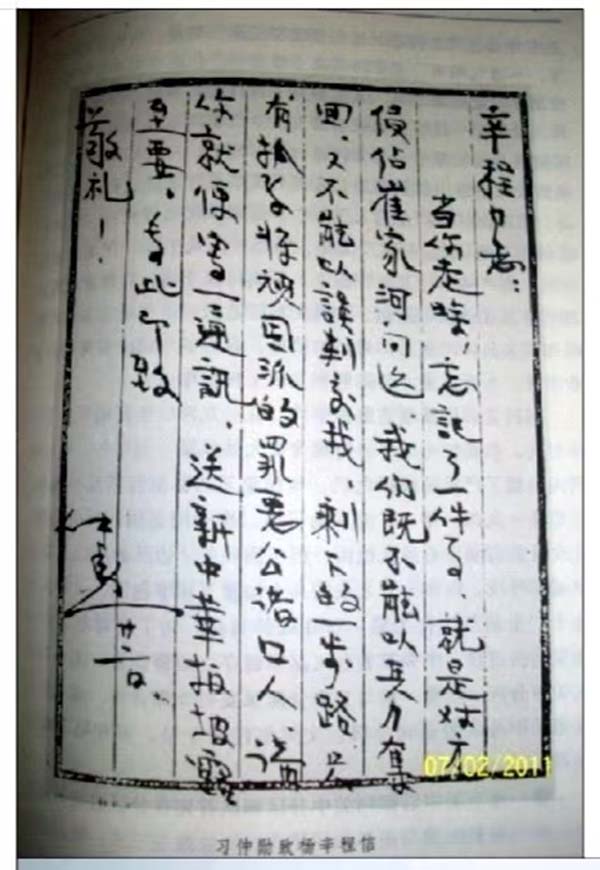 辛程同志：
当你走时，忘记了一件事，就是对于
侵占崔家河问题 我们既不能以兵力夺
回，又不能以谈判 我 剩下的 路 只
有 将顽固派的罪恶公诸 人 请
你就便写一通讯，送新中华报揭露
至要，专此即致
敬礼！
仲勋 廿一日
07/02/2011
习仲勋致杨辛程信